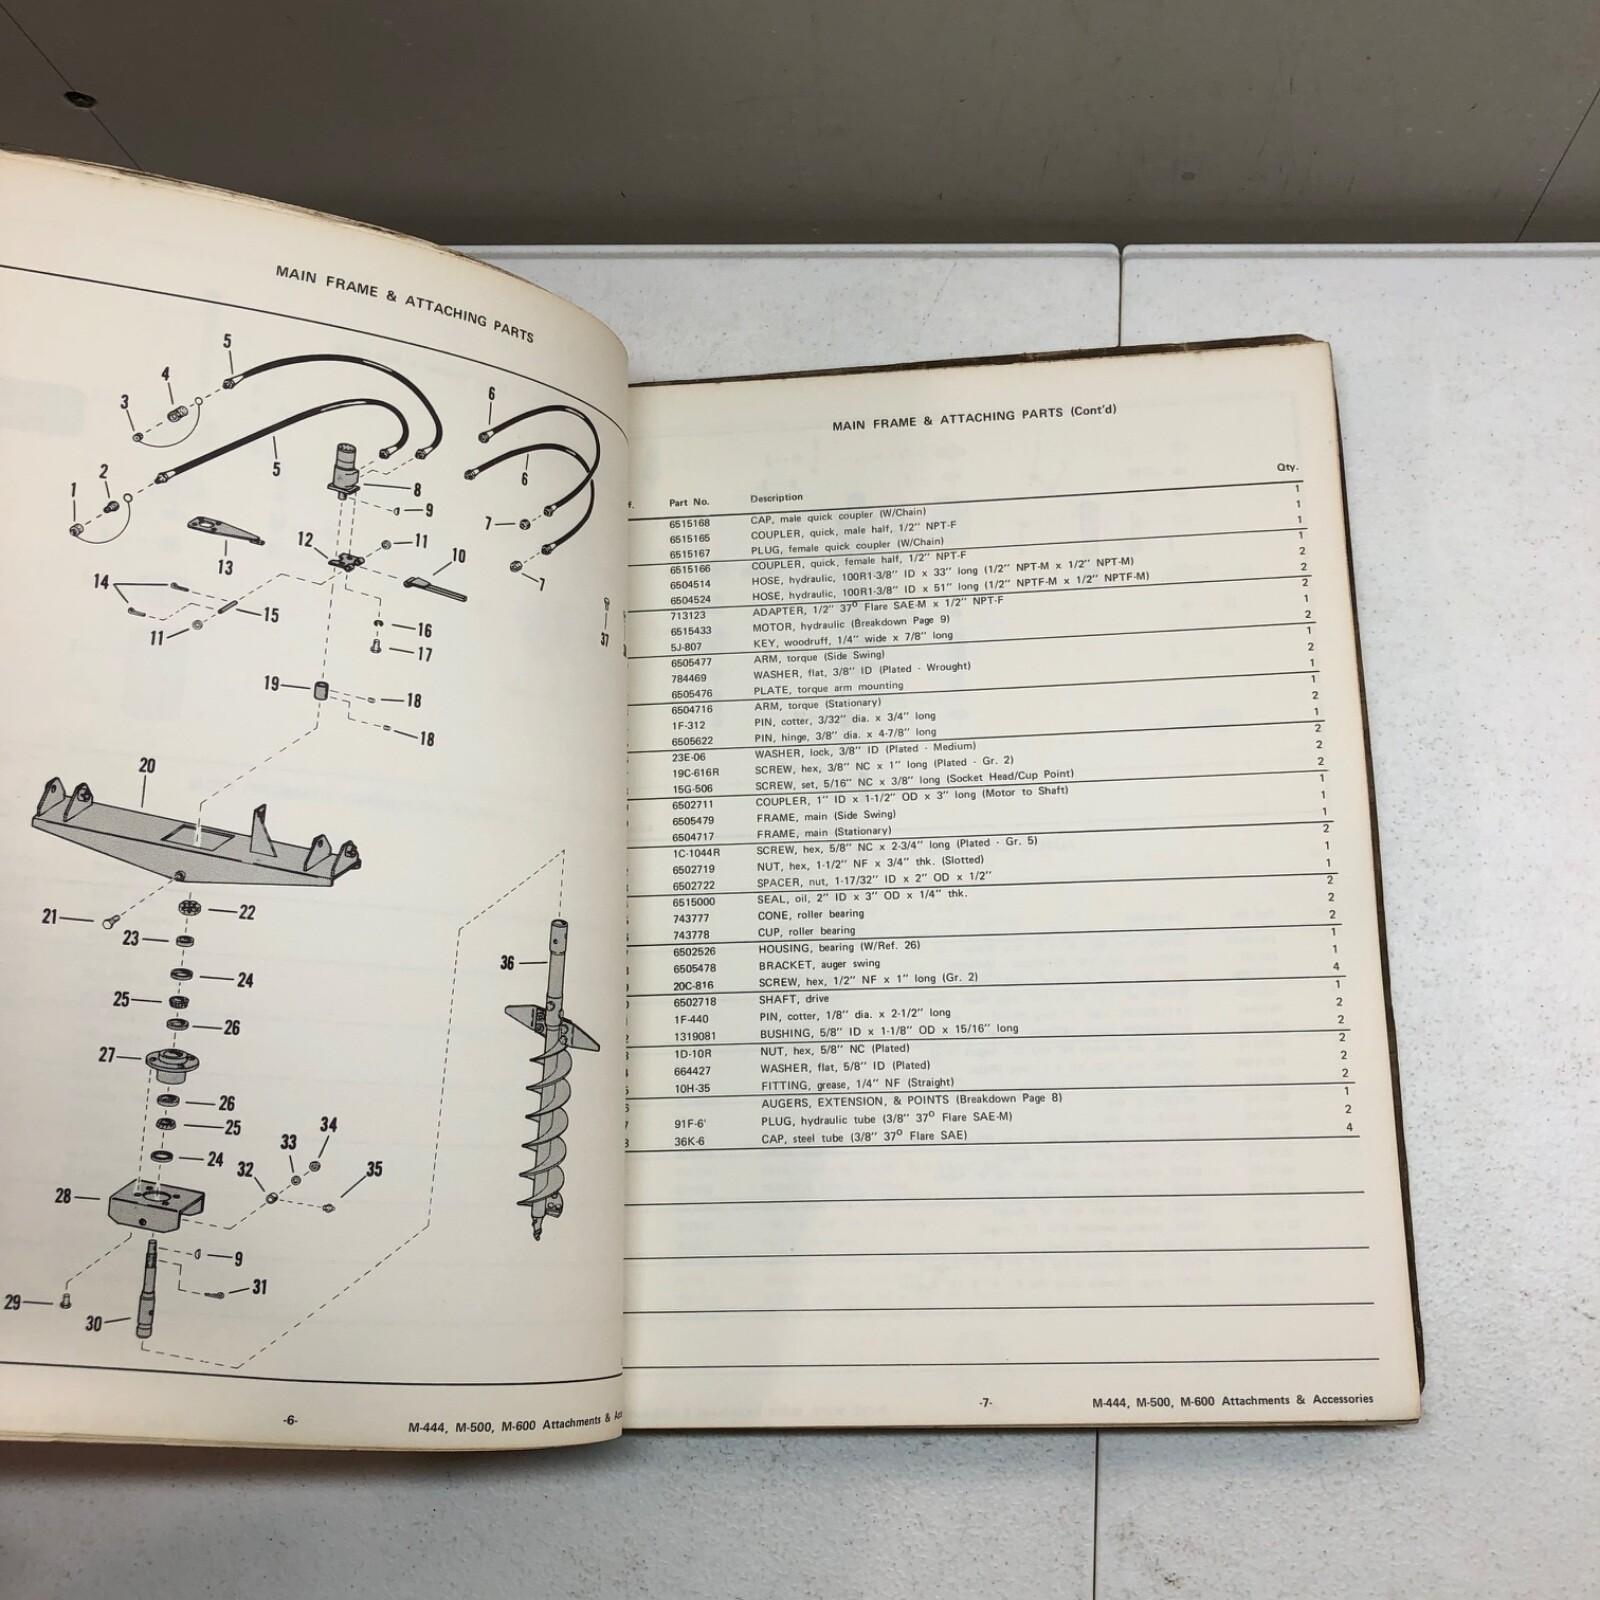 MAIN FRAME & ATTACHING PARTS
5
4
3
6
2
5
1
6
8
9
7
12
11
10
13
7
14
15
16
11
17
37
19
18
18
20
21
22
23
24
25
26
27
26
25
34
33
24
32
35
28
36
9
31
29
30
-6-
M-444, M-500, M-600 Attachments &
MAIN FRAME & ATTACHING PARTS (Cont'd)
f. Part No. Description Qty.
6515168 CAP, male quick coupler (W/Chain) 1
6515165 COUPLER, quick, male half, 1/2" NPT-F 1
6515167 PLUG, female quick coupler (W/Chain) 1
6515166 COUPLER, quick, female half, 1/2" NPT-F 1
6504514 HOSE, hydraulic, 100R1-3/8" ID x 33" long (1/2" NPT-M x 1/2" NPT-M) 2
6504524 HOSE, hydraulic, 100R1-3/8" ID x 51" long (1/2" NPTF-M x 1/2" NPTF-M) 2
713123 ADAPTER, 1/2" 37⁰ Flare SAE-M x 1/2" NPT-F 2
6515433 MOTOR, hydraulic (Breakdown Page 9) 1
5J-807 KEY, woodruff, 1/4" wide x 7/8" long 2
6505477 ARM, torque (Side Swing) 1
784469 WASHER, flat, 3/8" ID (Plated - Wrought) 2
6505476 PLATE, torque arm mounting 1
6504716 ARM, torque (Stationary) 1
1F-312 PIN, cotter, 3/32" dia. x 3/4" long 2
6505622 PIN, hinge, 3/8" dia. x 4-7/8" long 1
23E-06 WASHER, lock, 3/8" ID (Plated - Medium) 2
19C-616R SCREW, hex, 3/8" NC x 1" long (Plated - Gr. 2) 2
15G-506 SCREW, set, 5/16" NC x 3/8" long (Socket Head/Cup Point) 2
6502711 COUPLER, 1" ID x 1-1/2" OD x 3" long (Motor to Shaft) 1
6505479 FRAME, main (Side Swing) 1
6504717 FRAME, main (Stationary) 1
1C-1044R SCREW, hex, 5/8" NC x 2-3/4" long (Plated - Gr. 5) 2
6502719 NUT, hex, 1-1/2" NF x 3/4" thk. (Slotted) 1
6502722 SPACER, nut, 1-17/32" ID x 2" OD x 1/2" 1
6515000 SEAL, oil, 2" ID x 3" OD x 1/4" thk. 2
743777 CONE, roller bearing 2
743778 CUP, roller bearing 2
6502526 HOUSING, bearing (W/Ref. 26) 1
6505478 BRACKET, auger swing 1
20C-816 SCREW, hex, 1/2" NF x 1" long (Gr. 2) 4
6502718 SHAFT, drive 1
1F-440 PIN, cotter, 1/8" dia. x 2-1/2" long 2
1319081 BUSHING, 5/8" ID x 1-1/8" OD x 15/16" long 2
1D-10R NUT, hex, 5/8" NC (Plated) 2
664427 WASHER, flat, 5/8" ID (Plated) 2
10H-35 FITTING, grease, 1/4" NF (Straight) 2
AUGERS, EXTENSION, & POINTS (Breakdown Page 8) 1
91F-6' PLUG, hydraulic tube (3/8" 37⁰ Flare SAE-M) 2
36K-6 CAP, steel tube (3/8" 37⁰ Flare SAE) 4
-7-
M-444, M-500, M-600 Attachments & Accessories